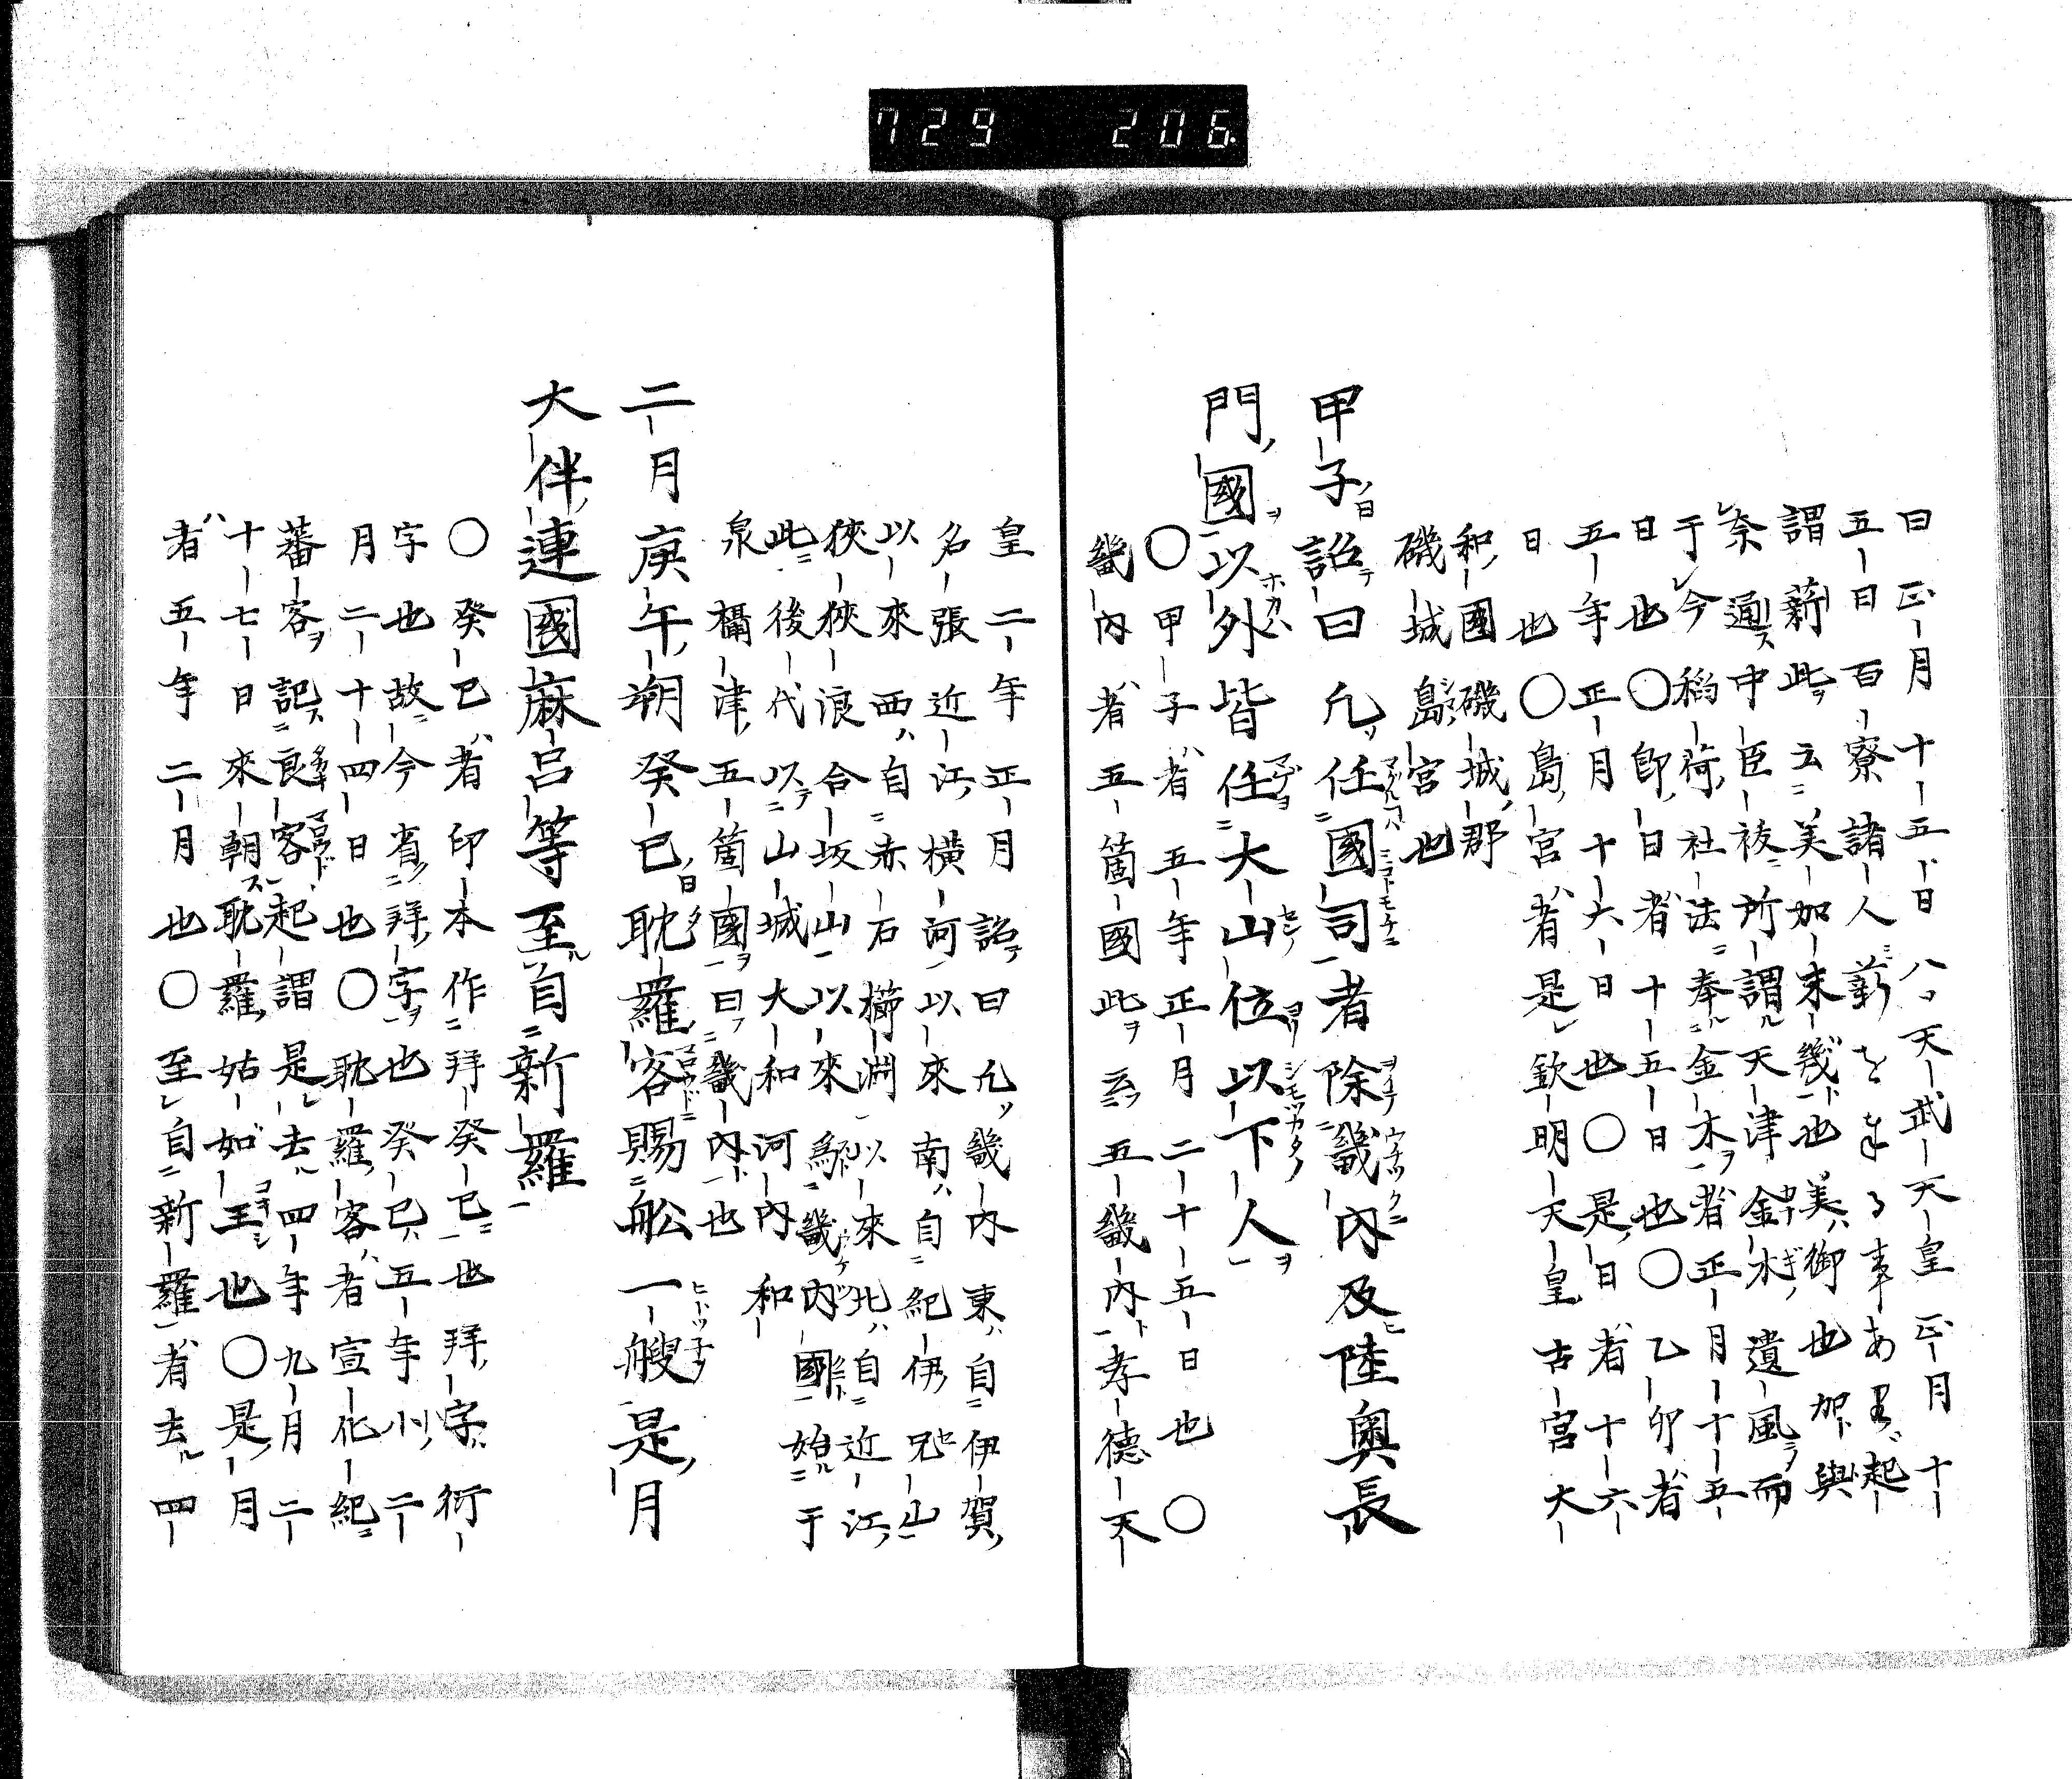 729 206
曰正月十五日八天武天皇正月十
五日百寮諸人薪をたてまつる事あり起
謂薪此云美加末幾也美御也加與
奈通中臣祓所謂天津金水遺風而
于今稻荷社法奉金木者正月十五
日也〇卽日者十五日也〇乙卯者
五年正月十六日也〇是日者十六
日也〇島宮者是欽明天皇古宮大
和國磯城郡
磯城島宮也
甲子詔曰凡任國司者除畿內及陸奧長
門國以外皆任大山位以下人
〇甲子者五年正月二十五日也〇
畿內者五箇國此云五畿內孝德天
皇二年正月詔曰凡畿內東自伊賀
名張近江橫河以來南自紀伊兄山
以來西自赤石櫛淵以來北自近江
狹狹浪合坂山以來爲畿內國始于
此後代以山城大和河內和
泉攝津五箇國曰畿內也
二月庚午朔癸巳耽羅客賜船一艘是月
大伴連國麻呂等至自新羅
〇癸巳者印本作拜癸巳也拜字衍
字也故今省拜字也癸巳五年二
月二十四日也〇耽羅客者宣化紀
蕃客記良客起謂是去四年九月二
十七日來朝耽羅姑如王也〇是月
者五年二月也〇至自新羅者去四